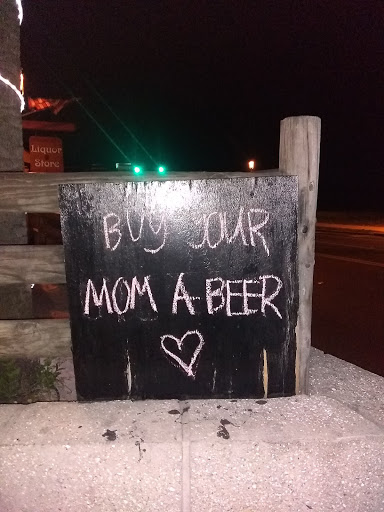 Liquor
Store
BUY YOUR
MOM A BEER